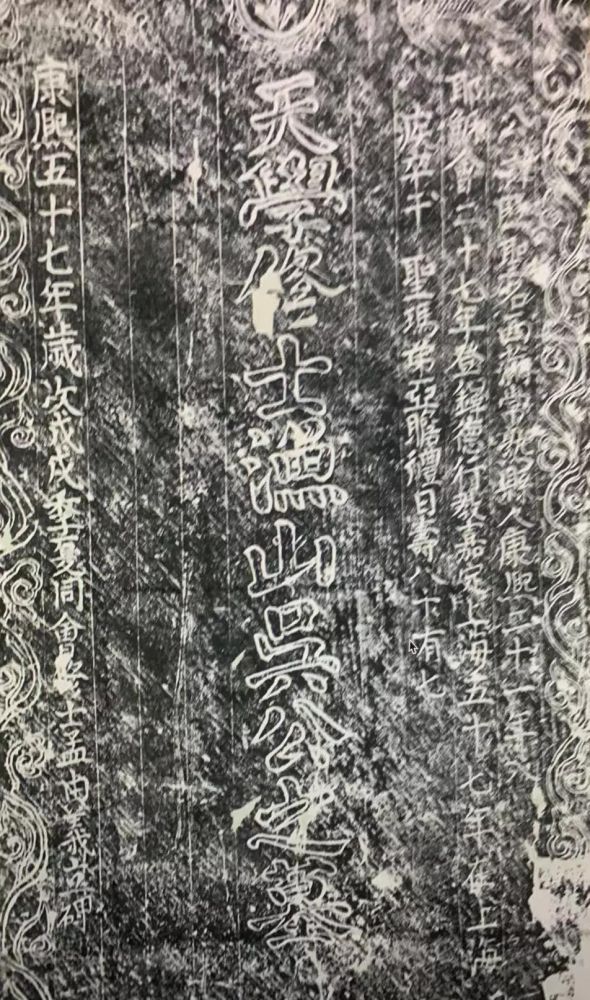 公諱歷聖名西滿常熟縣人康熙二十一年入
耶穌會二十七年登鐸德行教嘉定上海五十七年在上海
疾卒于 聖瑪弟亞瞻禮日壽八十有七
天學修士漁山吳公之墓
康熙五十七年歲次戊戌季夏同會修士孟由義立碑